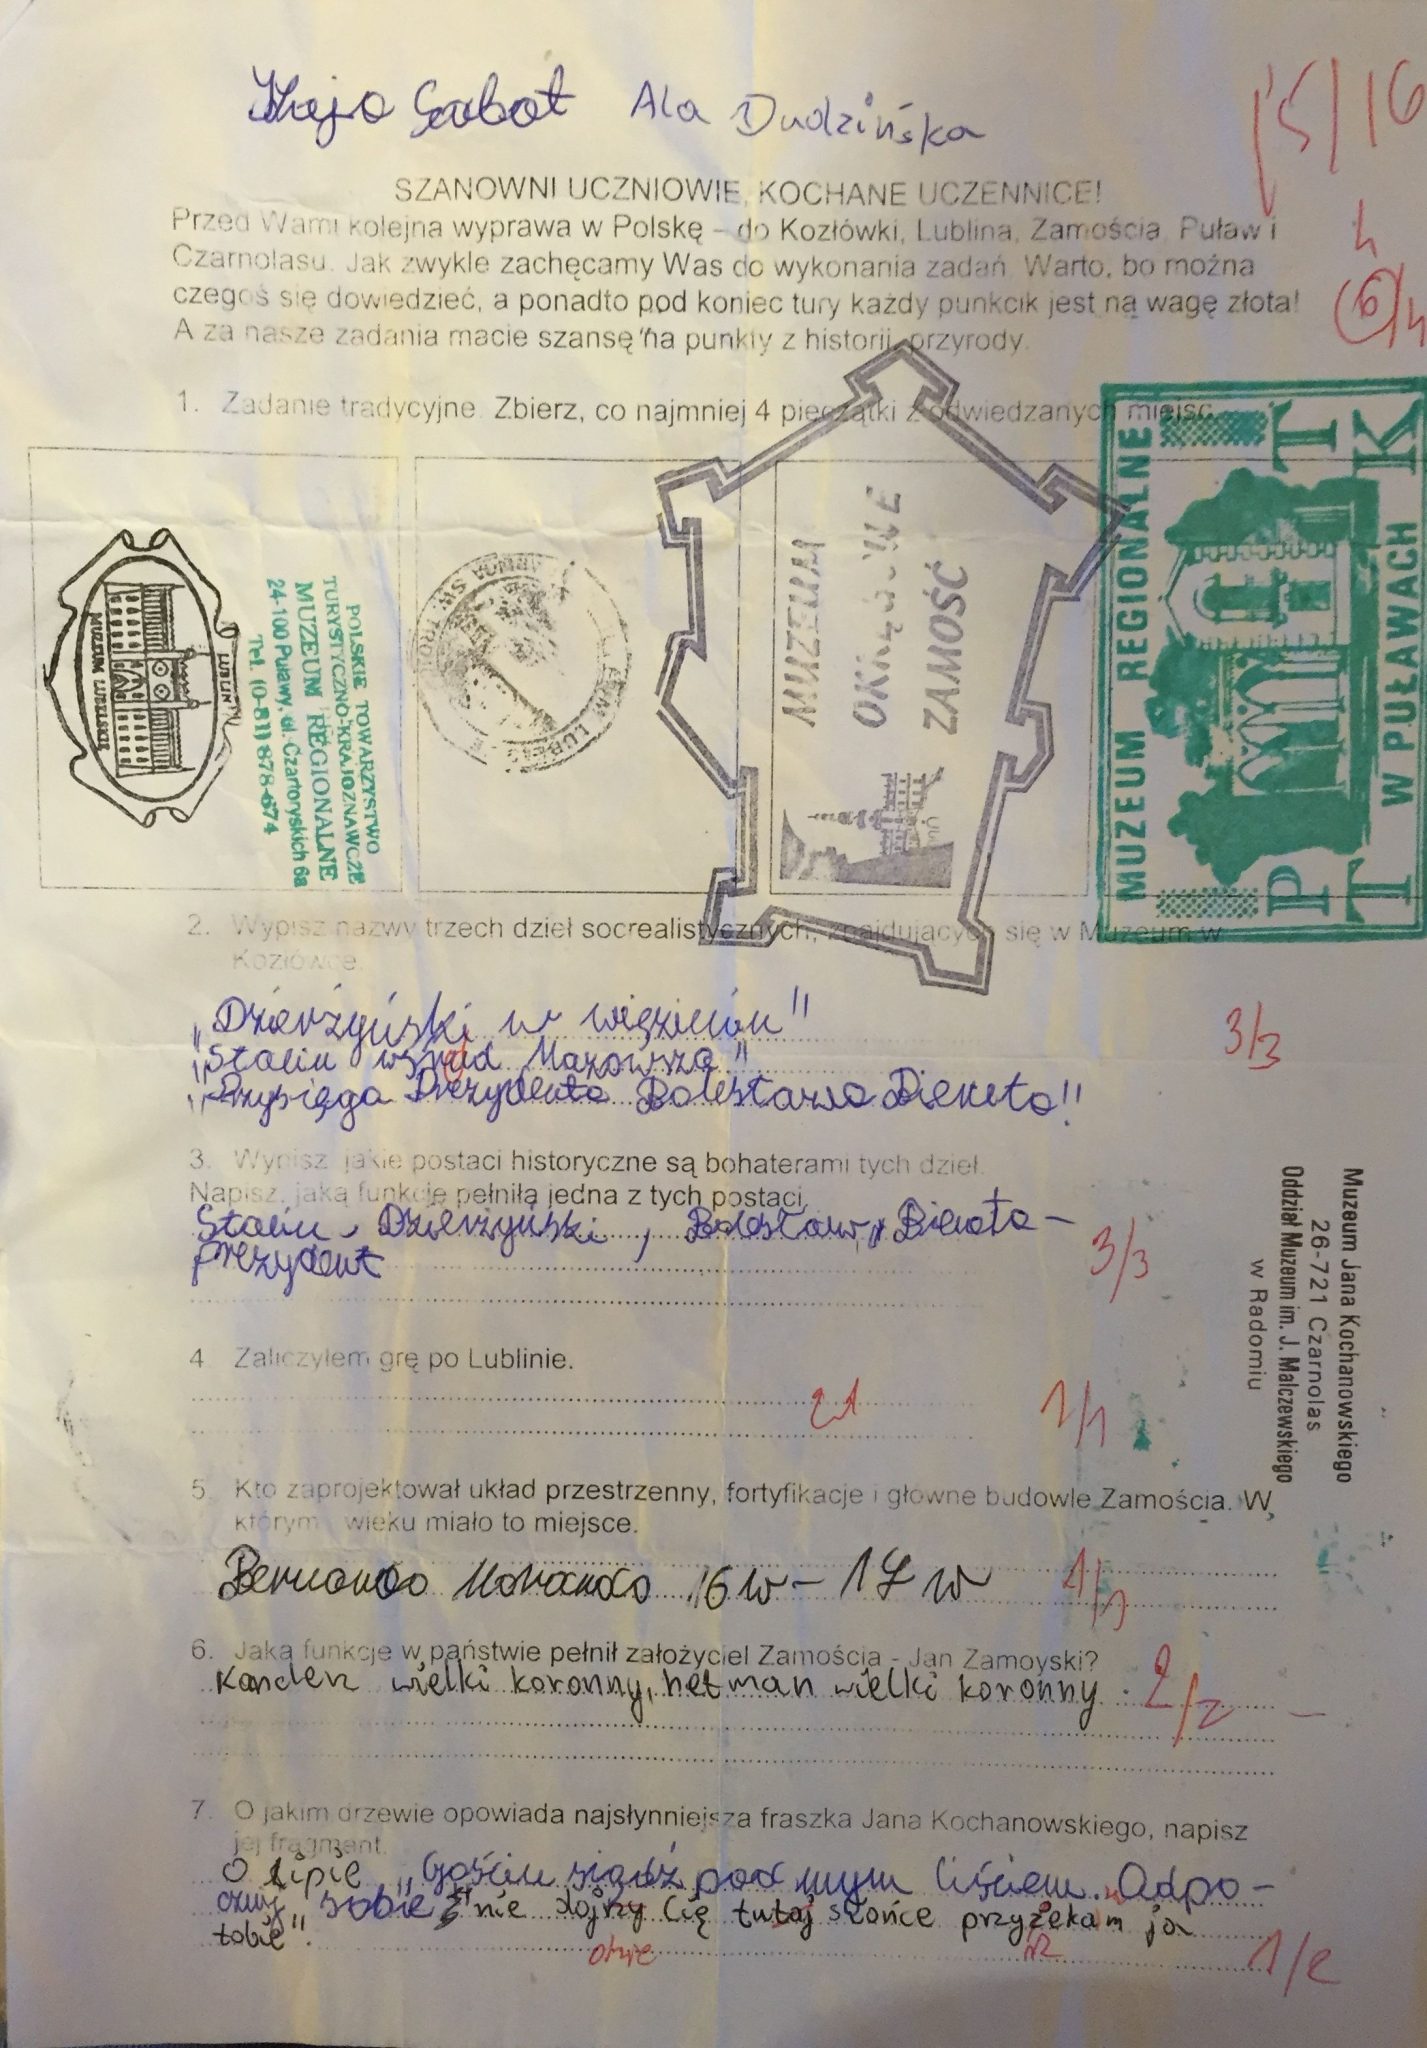 Kaja Sabot Ala Dudzińska
15/16
SZANOWNI UCZNIOWIE, KOCHANE UCZENNICE!
Przed Wami kolejna wyprawa w Polskę – do Kozłówki, Lublina, Zamościa, Puław i
Czarnolasu. Jak zwykle zachęcamy Was do wykonania zadań. Warto, bo można
czegoś się dowiedzieć, a ponadto pod koniec tury każdy punkcik jest na wagę złota!
A za nasze zadania macie szansę na punkty z historii, przyrody.
1. Zadanie tradycyjne. Zbierz, co najmniej 4 pieczątki z odwiedzanych miejsc.
LUBLIN
MUZEUM LUBELSKIE
POLSKIE TOWARZYSTWO
TURYSTYCZNO-KRAJOZNAWCZE
MUZEUM REGIONALNE
24-100 Puławy, ul. Czartoryskich 6a
Tel. (0-81) 878-674
MUZEUM
OKRĘGOWE
ZAMOŚĆ
MUZEUM REGIONALNE
PTTK
W PUŁAWACH
2. Wypisz nazwy trzech dzieł socrealistycznych, znajdujących się w Muzeum w
Kozłówce.
„Dzierżyński w więzieniu"
„Stalin wśród Mazowsza"
„Przysięga Prezydenta Bolesława Bieruta"
3/3
3. Wypisz, jakie postaci historyczne są bohaterami tych dzieł.
Napisz, jaką funkcję pełniła jedna z tych postaci.
Stalin, Dzierżyński, Bolesław Bieruta –
prezydent
3/3
Muzeum Jana Kochanowskiego
26-721 Czarnolas
Oddział Muzeum im. J. Malczewskiego
w Radomiu
4. Zaliczyłem grę po Lublinie.
1/1
5. Kto zaprojektował układ przestrzenny, fortyfikacje i główne budowle Zamościa. W
którym wieku miało to miejsce.
Bernardo Morando 16 w – 17 w
1/1
6. Jaką funkcje w państwie pełnił założyciel Zamościa - Jan Zamoyski?
Kanclerz wielki koronny, hetman wielki koronny.
2/2
7. O jakim drzewie opowiada najsłynniejsza fraszka Jana Kochanowskiego, napisz
jej fragment.
O lipie „Gościu siądź pod mym liściem. Odpo-
cznij sobie nie dojrzy Cię tutaj słońce przyżekam ja
tobie".
1/2